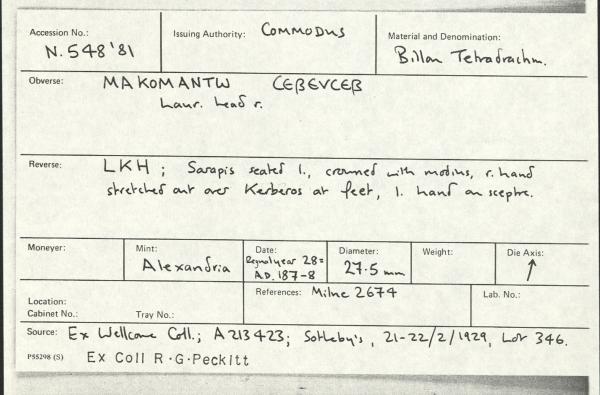 Accession No.: N.548'81
Issuing Authority: COMMODUS
Material and Denomination: Billon Tetradrachm.
Obverse: MAKOMANTW CEBEVCEB
Laur. head r.
Reverse: LKH ; Sarapis seated l., crowned with modius, r. hand
stretched out over Kerberos at feet, l. hand on sceptre.
Moneyer:
Mint: Alexandria
Date: Regnal year 28 = A.D. 187-8
Diameter: 27.5 mm
Weight:
Die Axis: ↑
Location:
Cabinet No.: Tray No.:
References: Milne 2674
Lab. No.:
Source: Ex Wellcome Coll.; A213423; Sotheby's, 21-22/2/1929, Lot 346.
P55298 (S) Ex Coll R·G·Peckitt